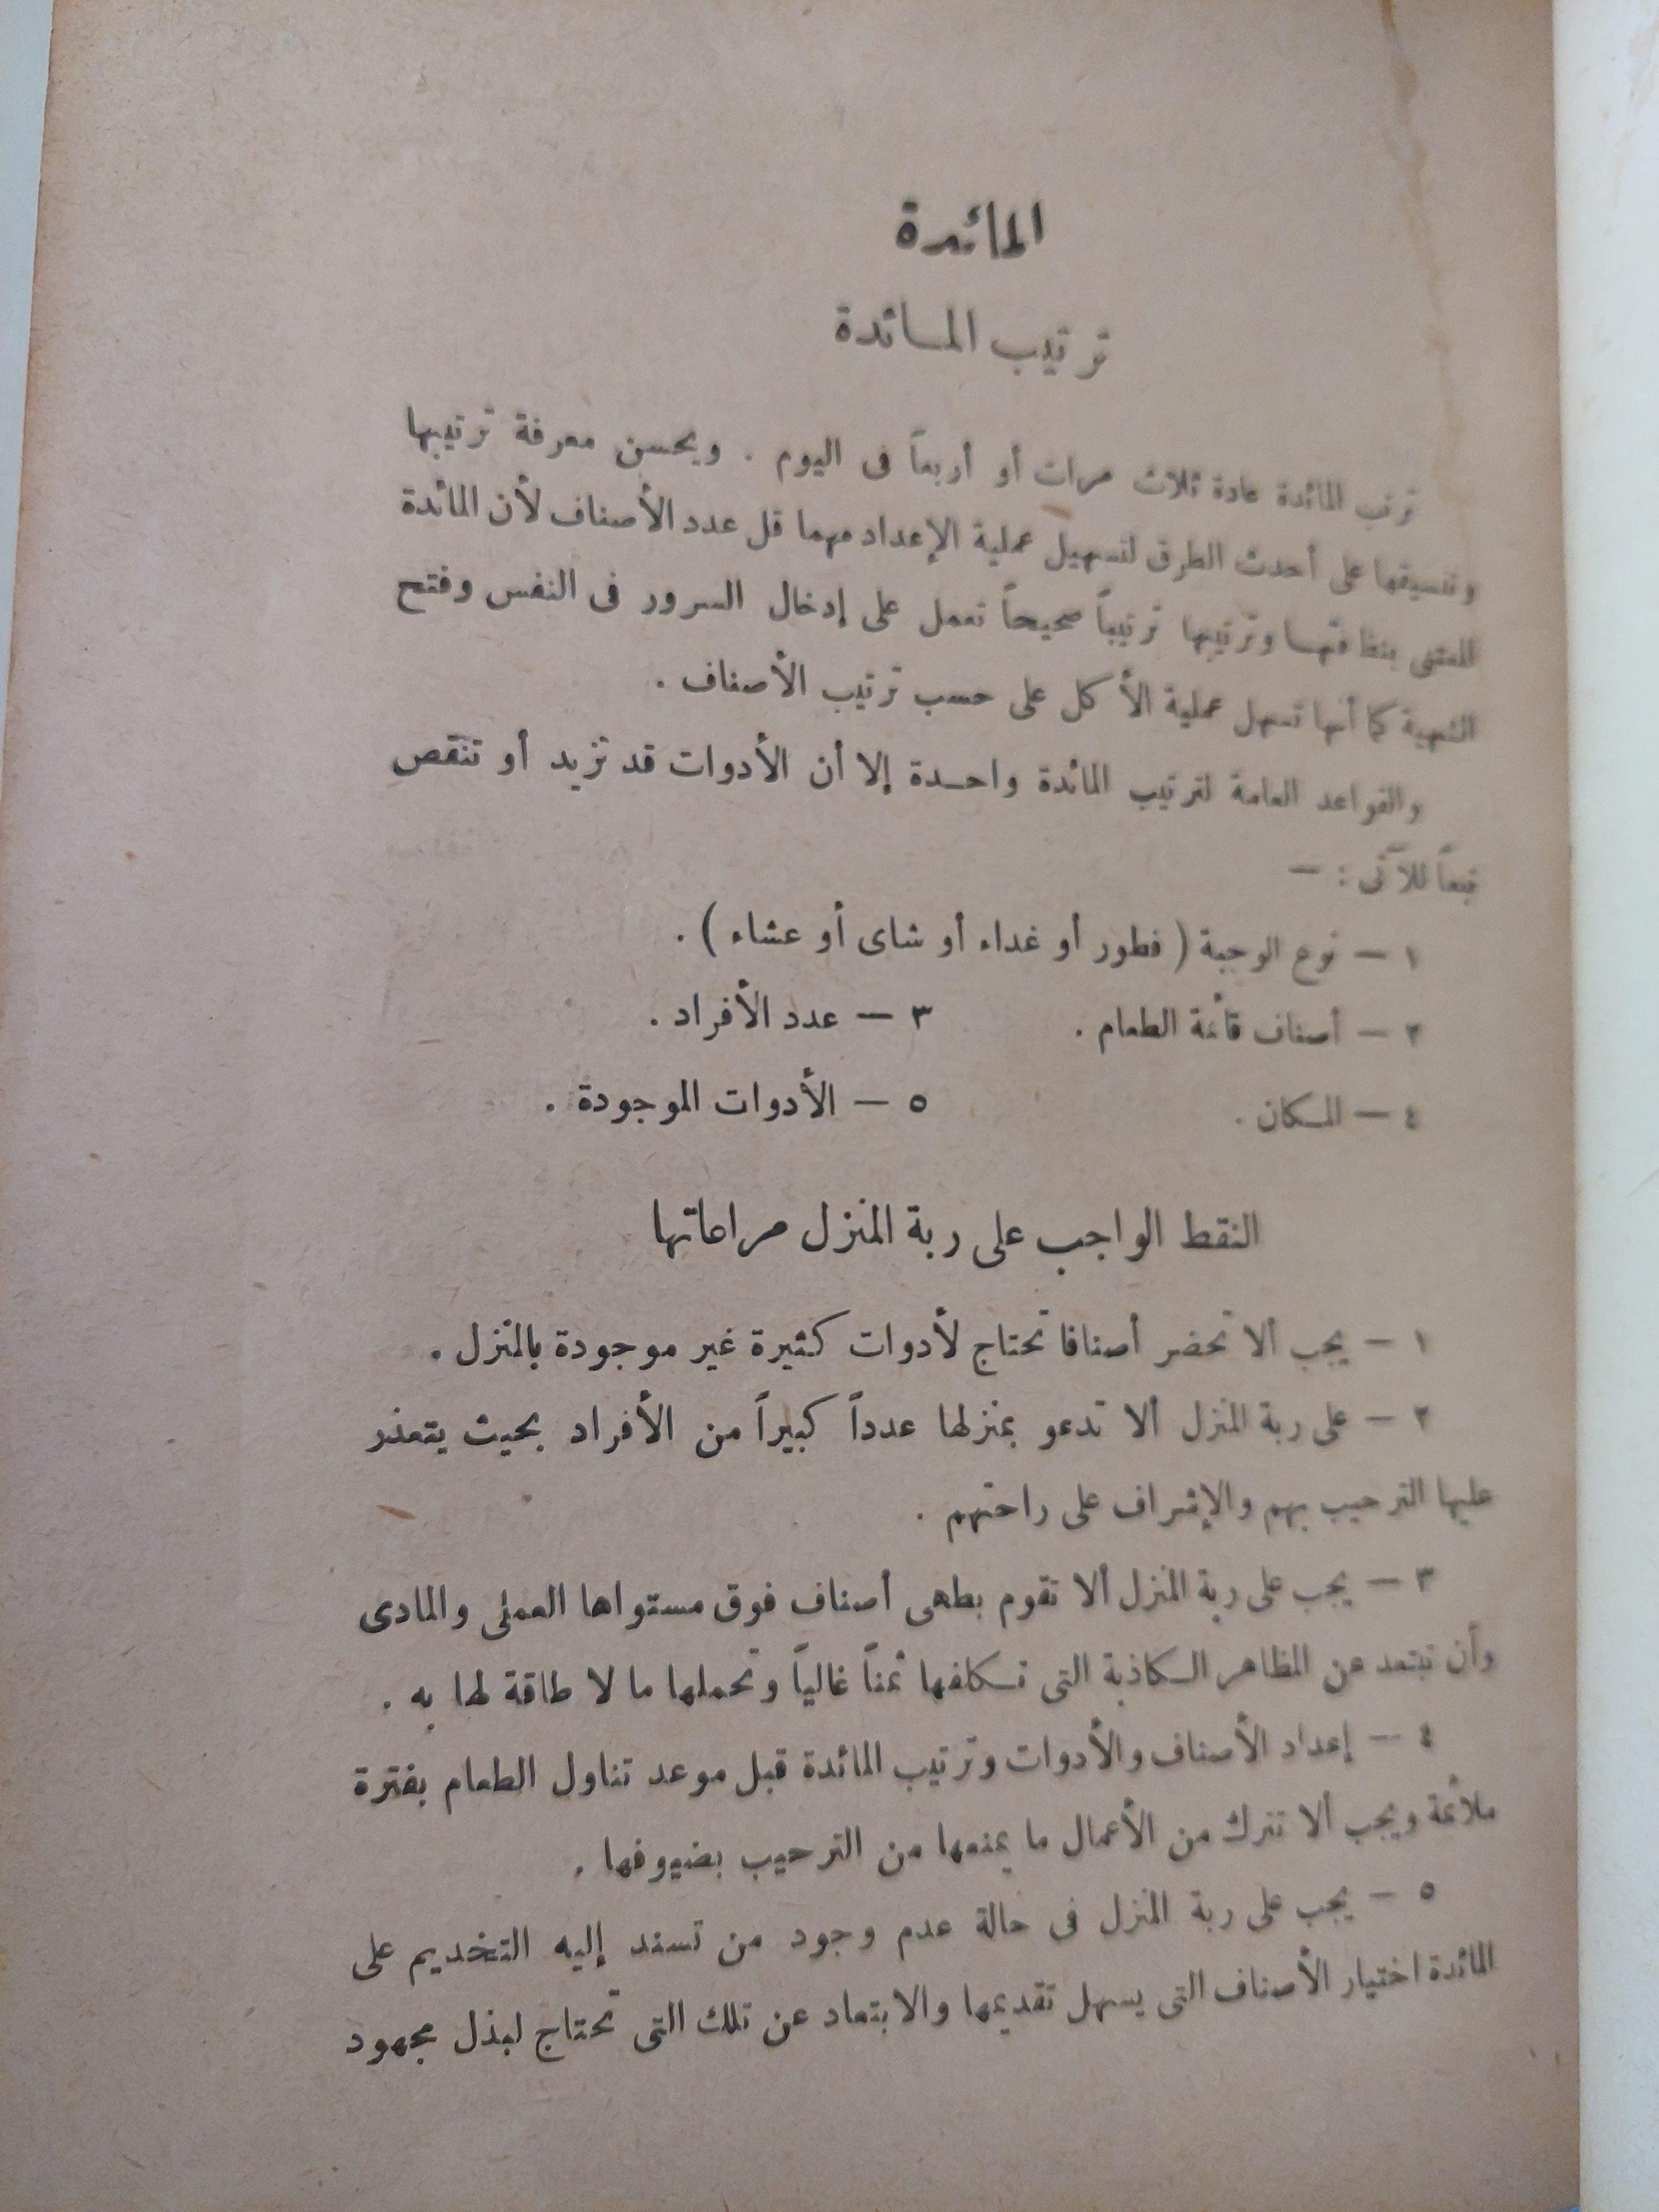 المائدة
ترتيب المائدة
ترتب المائدة عادة ثلاث مرات أو أربعاً فى اليوم . ويحسن معرفة ترتيبها
وتنسيقها على أحدث الطرق لتسهيل عملية الإعداد مهما قل عدد الأصناف لأن المائدة
المعتنى بنظافتها وترتيبها ترتيباً صحيحاً تعمل على إدخال السرور فى النفس وفتح
الشهية كما أنها تسهل عملية الأكل على حسب ترتيب الأصناف .
والقواعد العامة لترتيب المائدة واحدة إلا أن الأدوات قد تزيد أو تنقص
تبعاً للآتى : —
١ — نوع الوجبة ( فطور أو غداء أو شاى أو عشاء ) .
٢ — أصناف قائمة الطعام . ٣ — عدد الأفراد .
٤ — المكان . ٥ — الأدوات الموجودة .
النقط الواجب على ربة المنزل مراعاتها
١ — يجب ألا تحضر أصنافا تحتاج لأدوات كثيرة غير موجودة بالمنزل .
٢ — على ربة المنزل ألا تدعو بمنزلها عدداً كبيراً من الأفراد بحيث يتعذر
عليها الترحيب بهم والإشراف على راحتهم .
٣ — يجب على ربة المنزل ألا تقوم بطهى أصناف فوق مستواها العملى والمادى
وأن تبتعد عن المظاهر الكاذبة التى تكلفها ثمناً غالياً وتحملها ما لا طاقة لها به .
٤ — إعداد الأصناف والأدوات وترتيب المائدة قبل موعد تناول الطعام بفترة
ملائمة ويجب ألا تترك من الأعمال ما يمنعها من الترحيب بضيوفها .
٥ — يجب على ربة المنزل فى حالة عدم وجود من تسند إليه التخديم على
المائدة اختيار الأصناف التى يسهل تقديمها والابتعاد عن تلك التى تحتاج لبذل مجهود